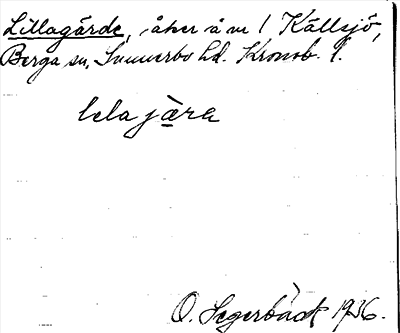 Lillagärde, åker å nr 1 Källsjö,
Berga sn, Sunnerbo hd. Kronob. l.
lela jàra
O. Segerbäck 1936.